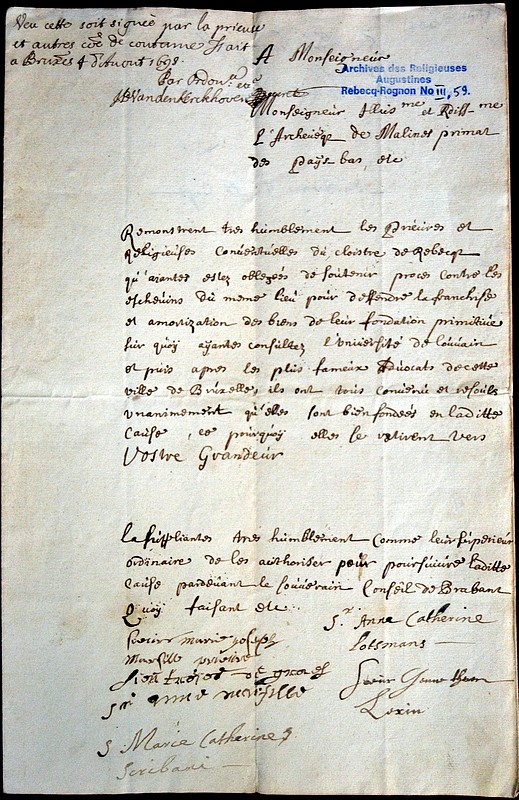 Veu cette soit signée par la prieuse
et autres de coutume fait
a Bruxes 4 d'Auost 1698.
Par Ordon.ce
JB Vandenkerckhoven
A Monseigneur
Archives des Religieuses
Augustines
Rebecq-Rognon No III, 59.
Monseigneur Illus me et Rdiss me
L'Archeveqz de Malines primat
des Pays bas, etc
Remonstrent tres humblement les Prieures et
Religieuses Conventuelles du cloistre de Rebecqz
qu'ajantes estez obligées de soutenir proces contre les
eschevins du meme lieu pour deffendre la franchise
et amortization des biens de leur fondation primitive
sur quoy ayantes consultez l'université de louvain
et puis apres les plus fameux Advocats de cette
ville de Bruxelles, ils ont tous convenu et resoulz
unanimement qu'elles sont bien fondées en laditte
Cause, ce pourquoy elles se retirent vers
Vostre Grandeur
la suppliantes tres humblement Comme leur superieur
ordinaire de les authoriser pour poursuivre laditte
Cause pardevant le souverain Conseil de Brabant
Quoy faisant etc
Soeur marie joseph
Marsille prieure
S.r Anna Catherine
Lotsmans
Sr anne marsille
Soeur
Lexin
S Marie Catherine
Scribani